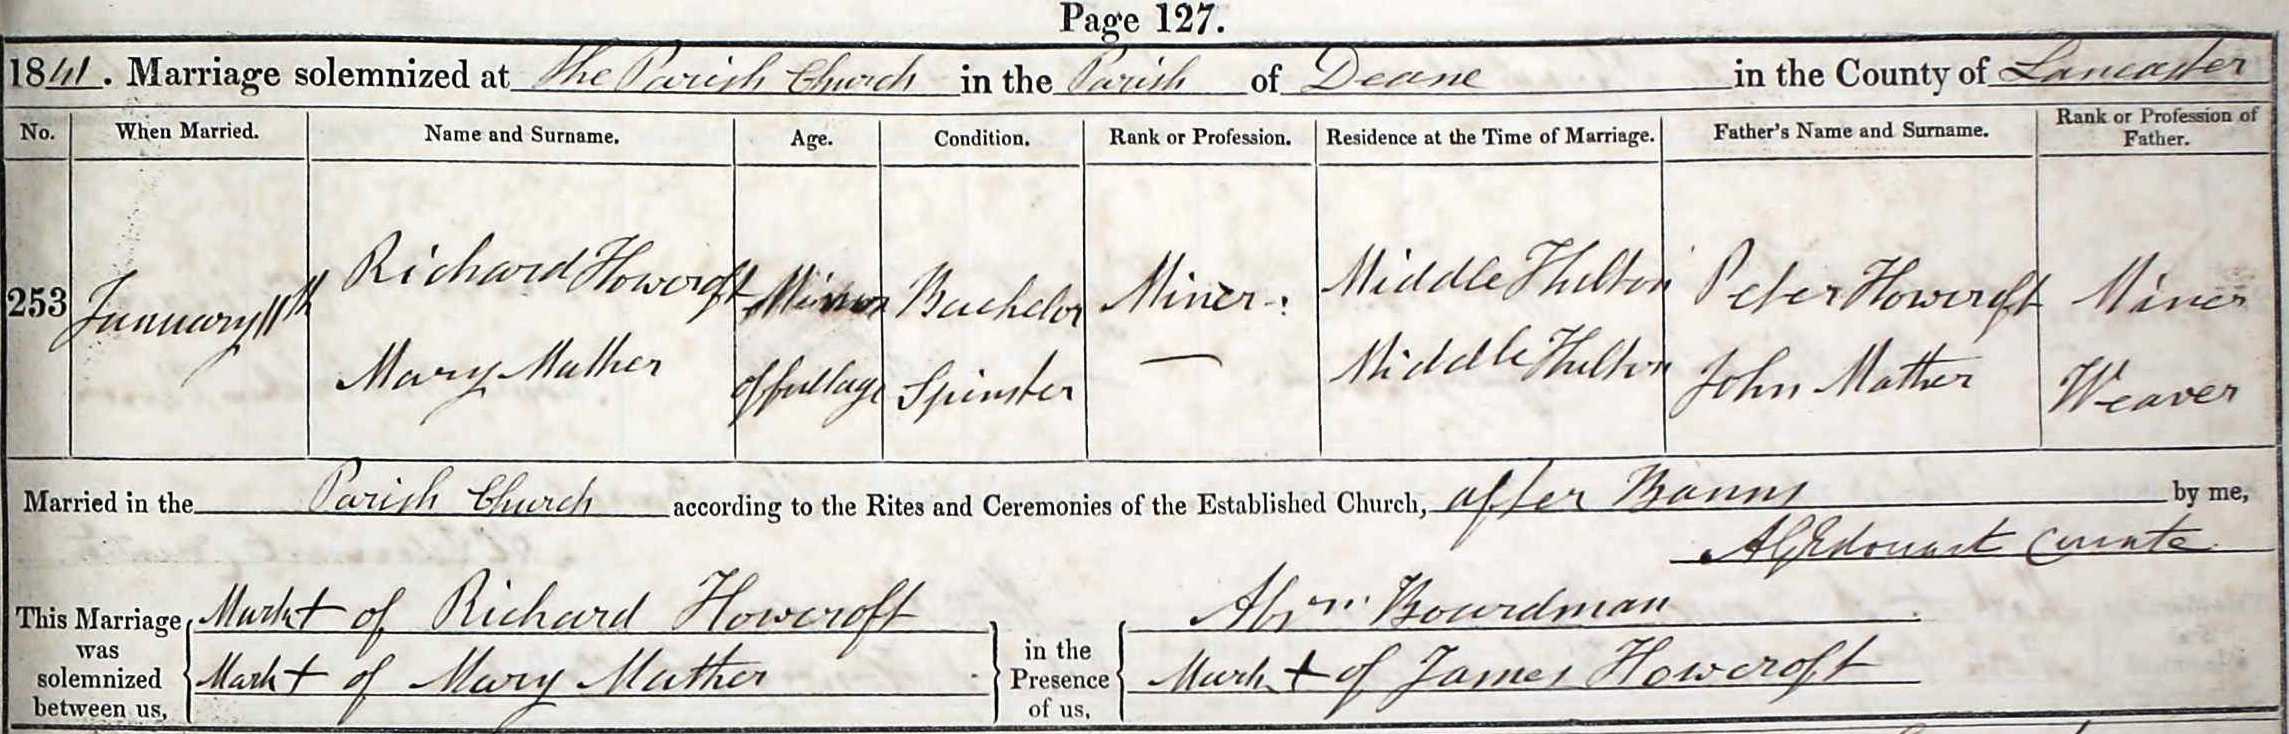 Page 127.
1841. Marriage solemnized at the Parish Church in the Parish of Deane in the County of Lancaster
No. When Married. Name and Surname. Age. Condition. Rank or Profession. Residence at the Time of Marriage. Father's Name and Surname. Rank or Profession of Father.
253 January 11th Richard Howcroft Minor Bachelor Miner Middle Hulton Peter Howcroft Miner
Mary Mather of full age Spinster — Middle Hulton John Mather Weaver
Married in the Parish Church according to the Rites and Ceremonies of the Established Church, after Banns by me,
Edouart Curate
This Marriage was solemnized between us,
Mark + of Richard Howcroft
Mark + of Mary Mather
in the Presence of us,
Abm Boardman
Mark + of James Howcroft